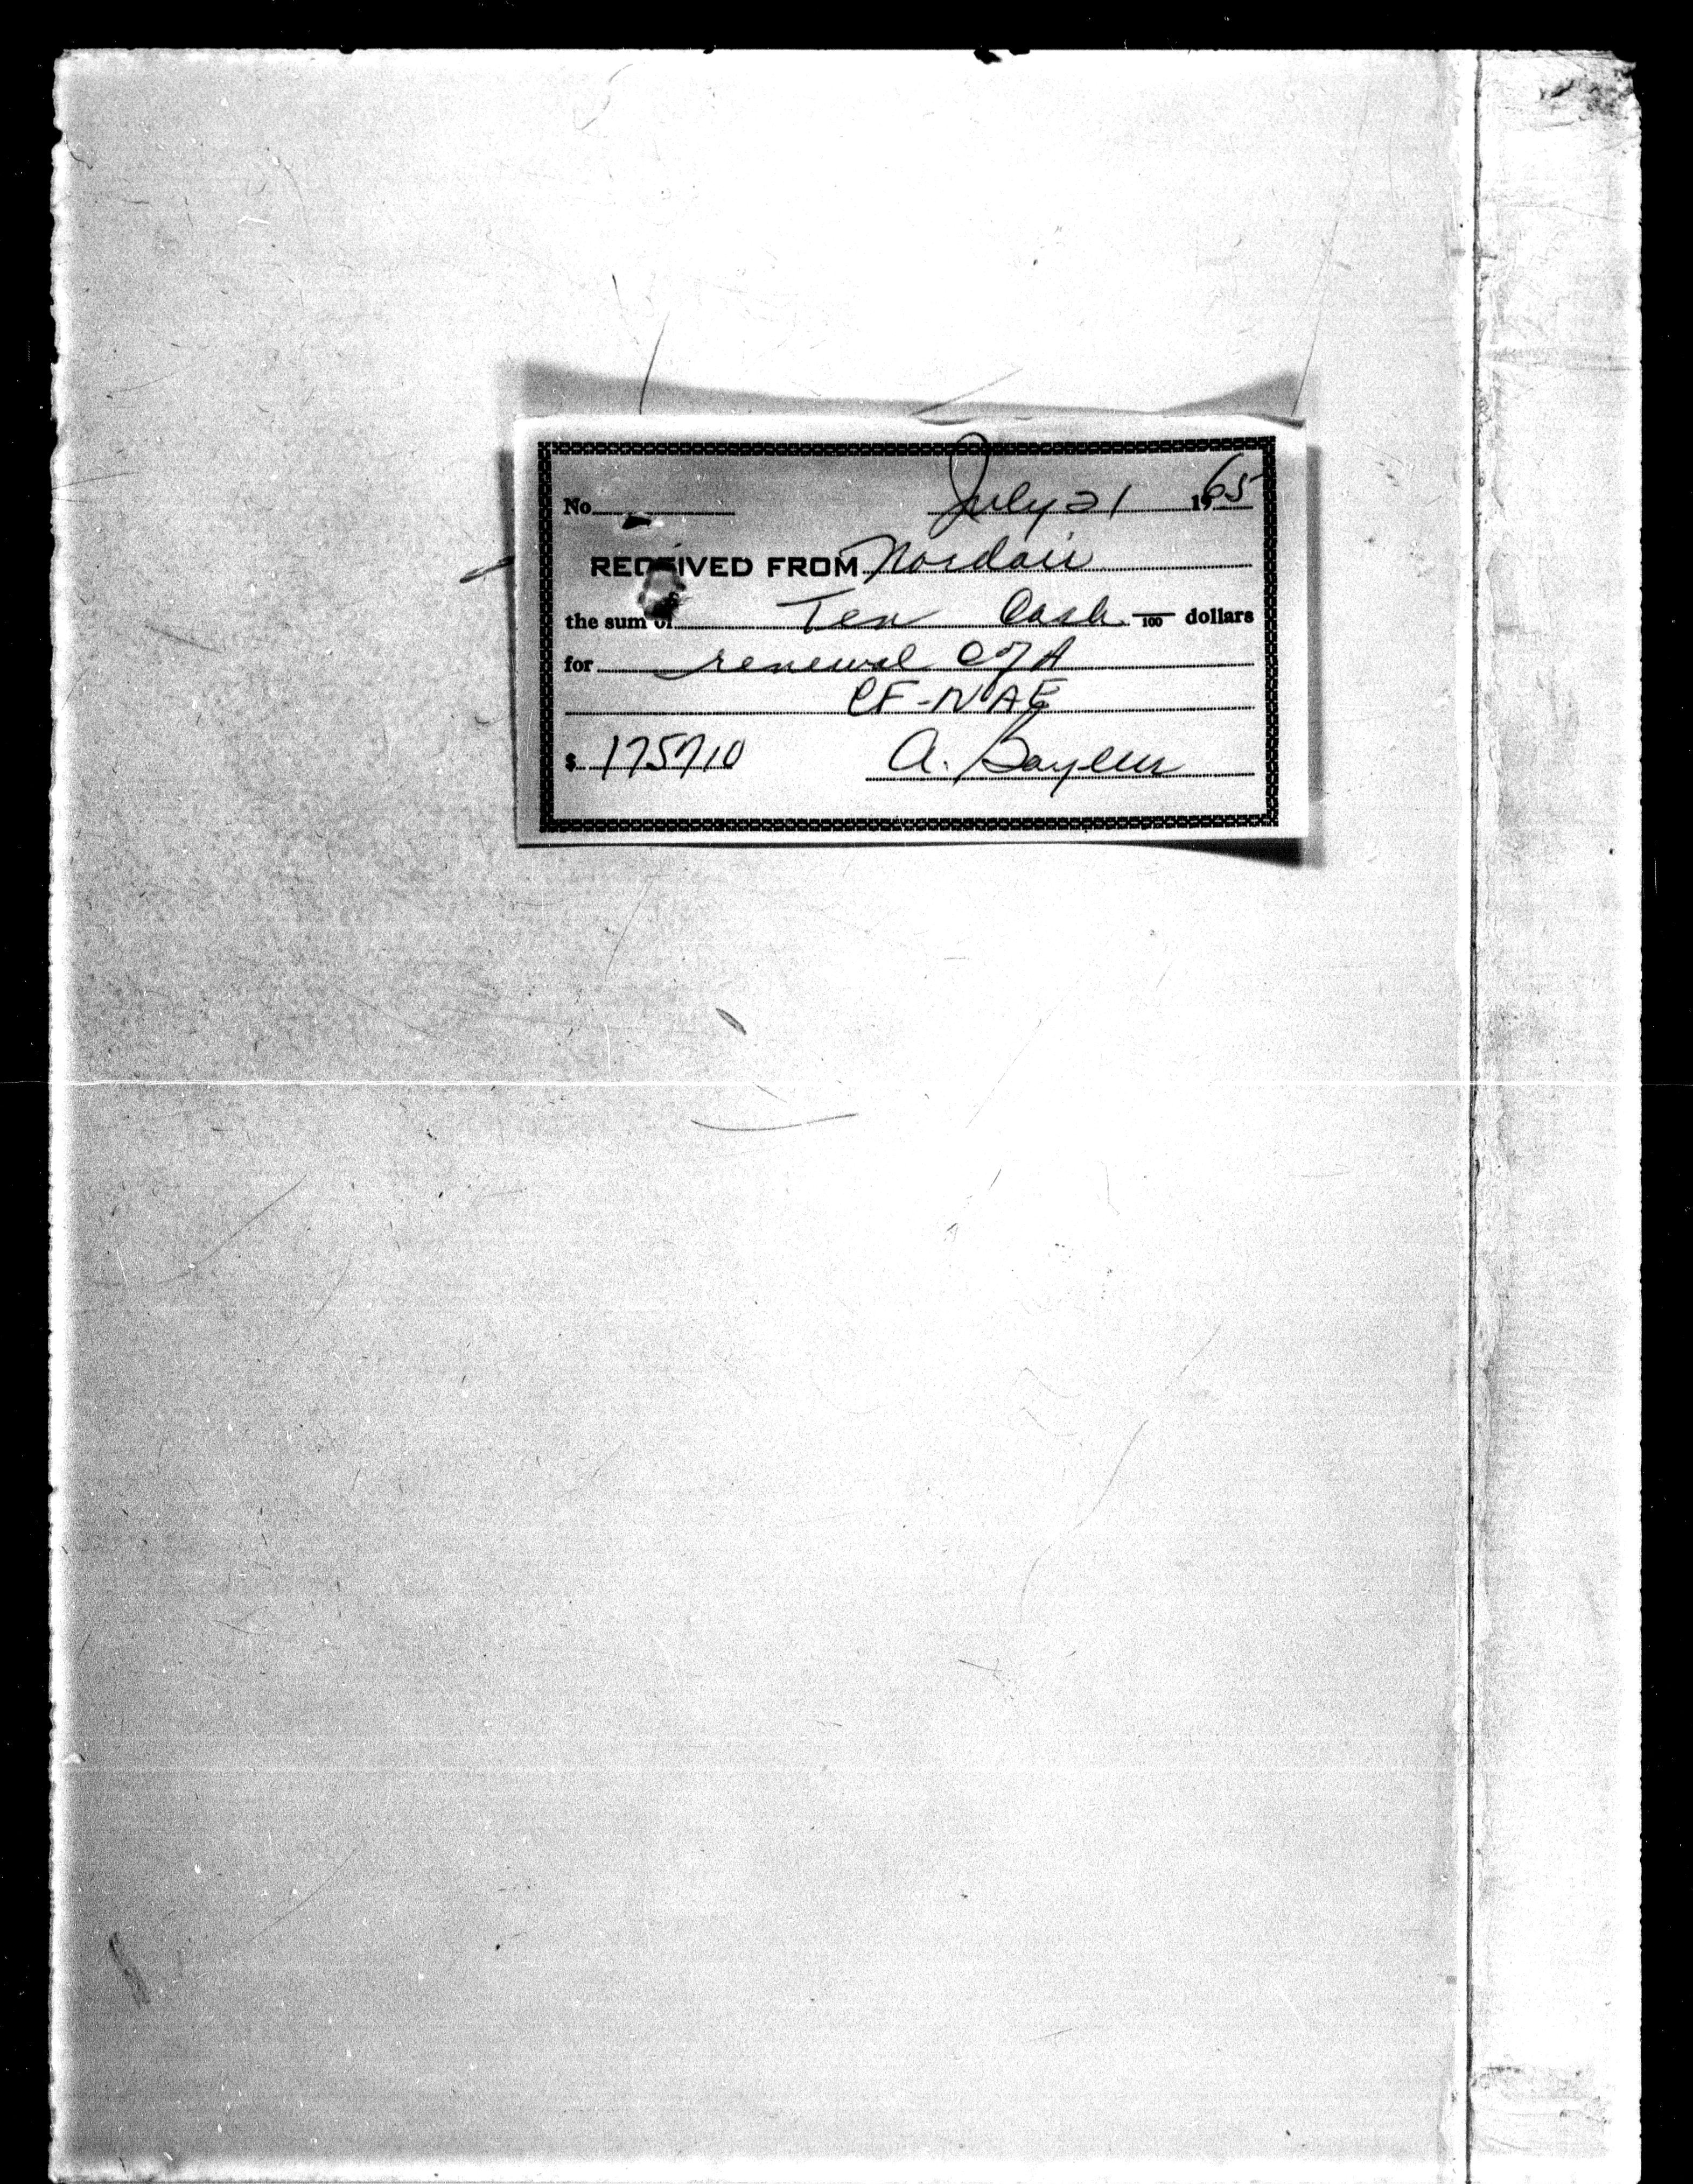 No. July 21 1965
RECEIVED FROM Nordair
the sum of Ten Cash /100 dollars
for renewal C of A
CF-NAE
$ 175710 A. Bayeur